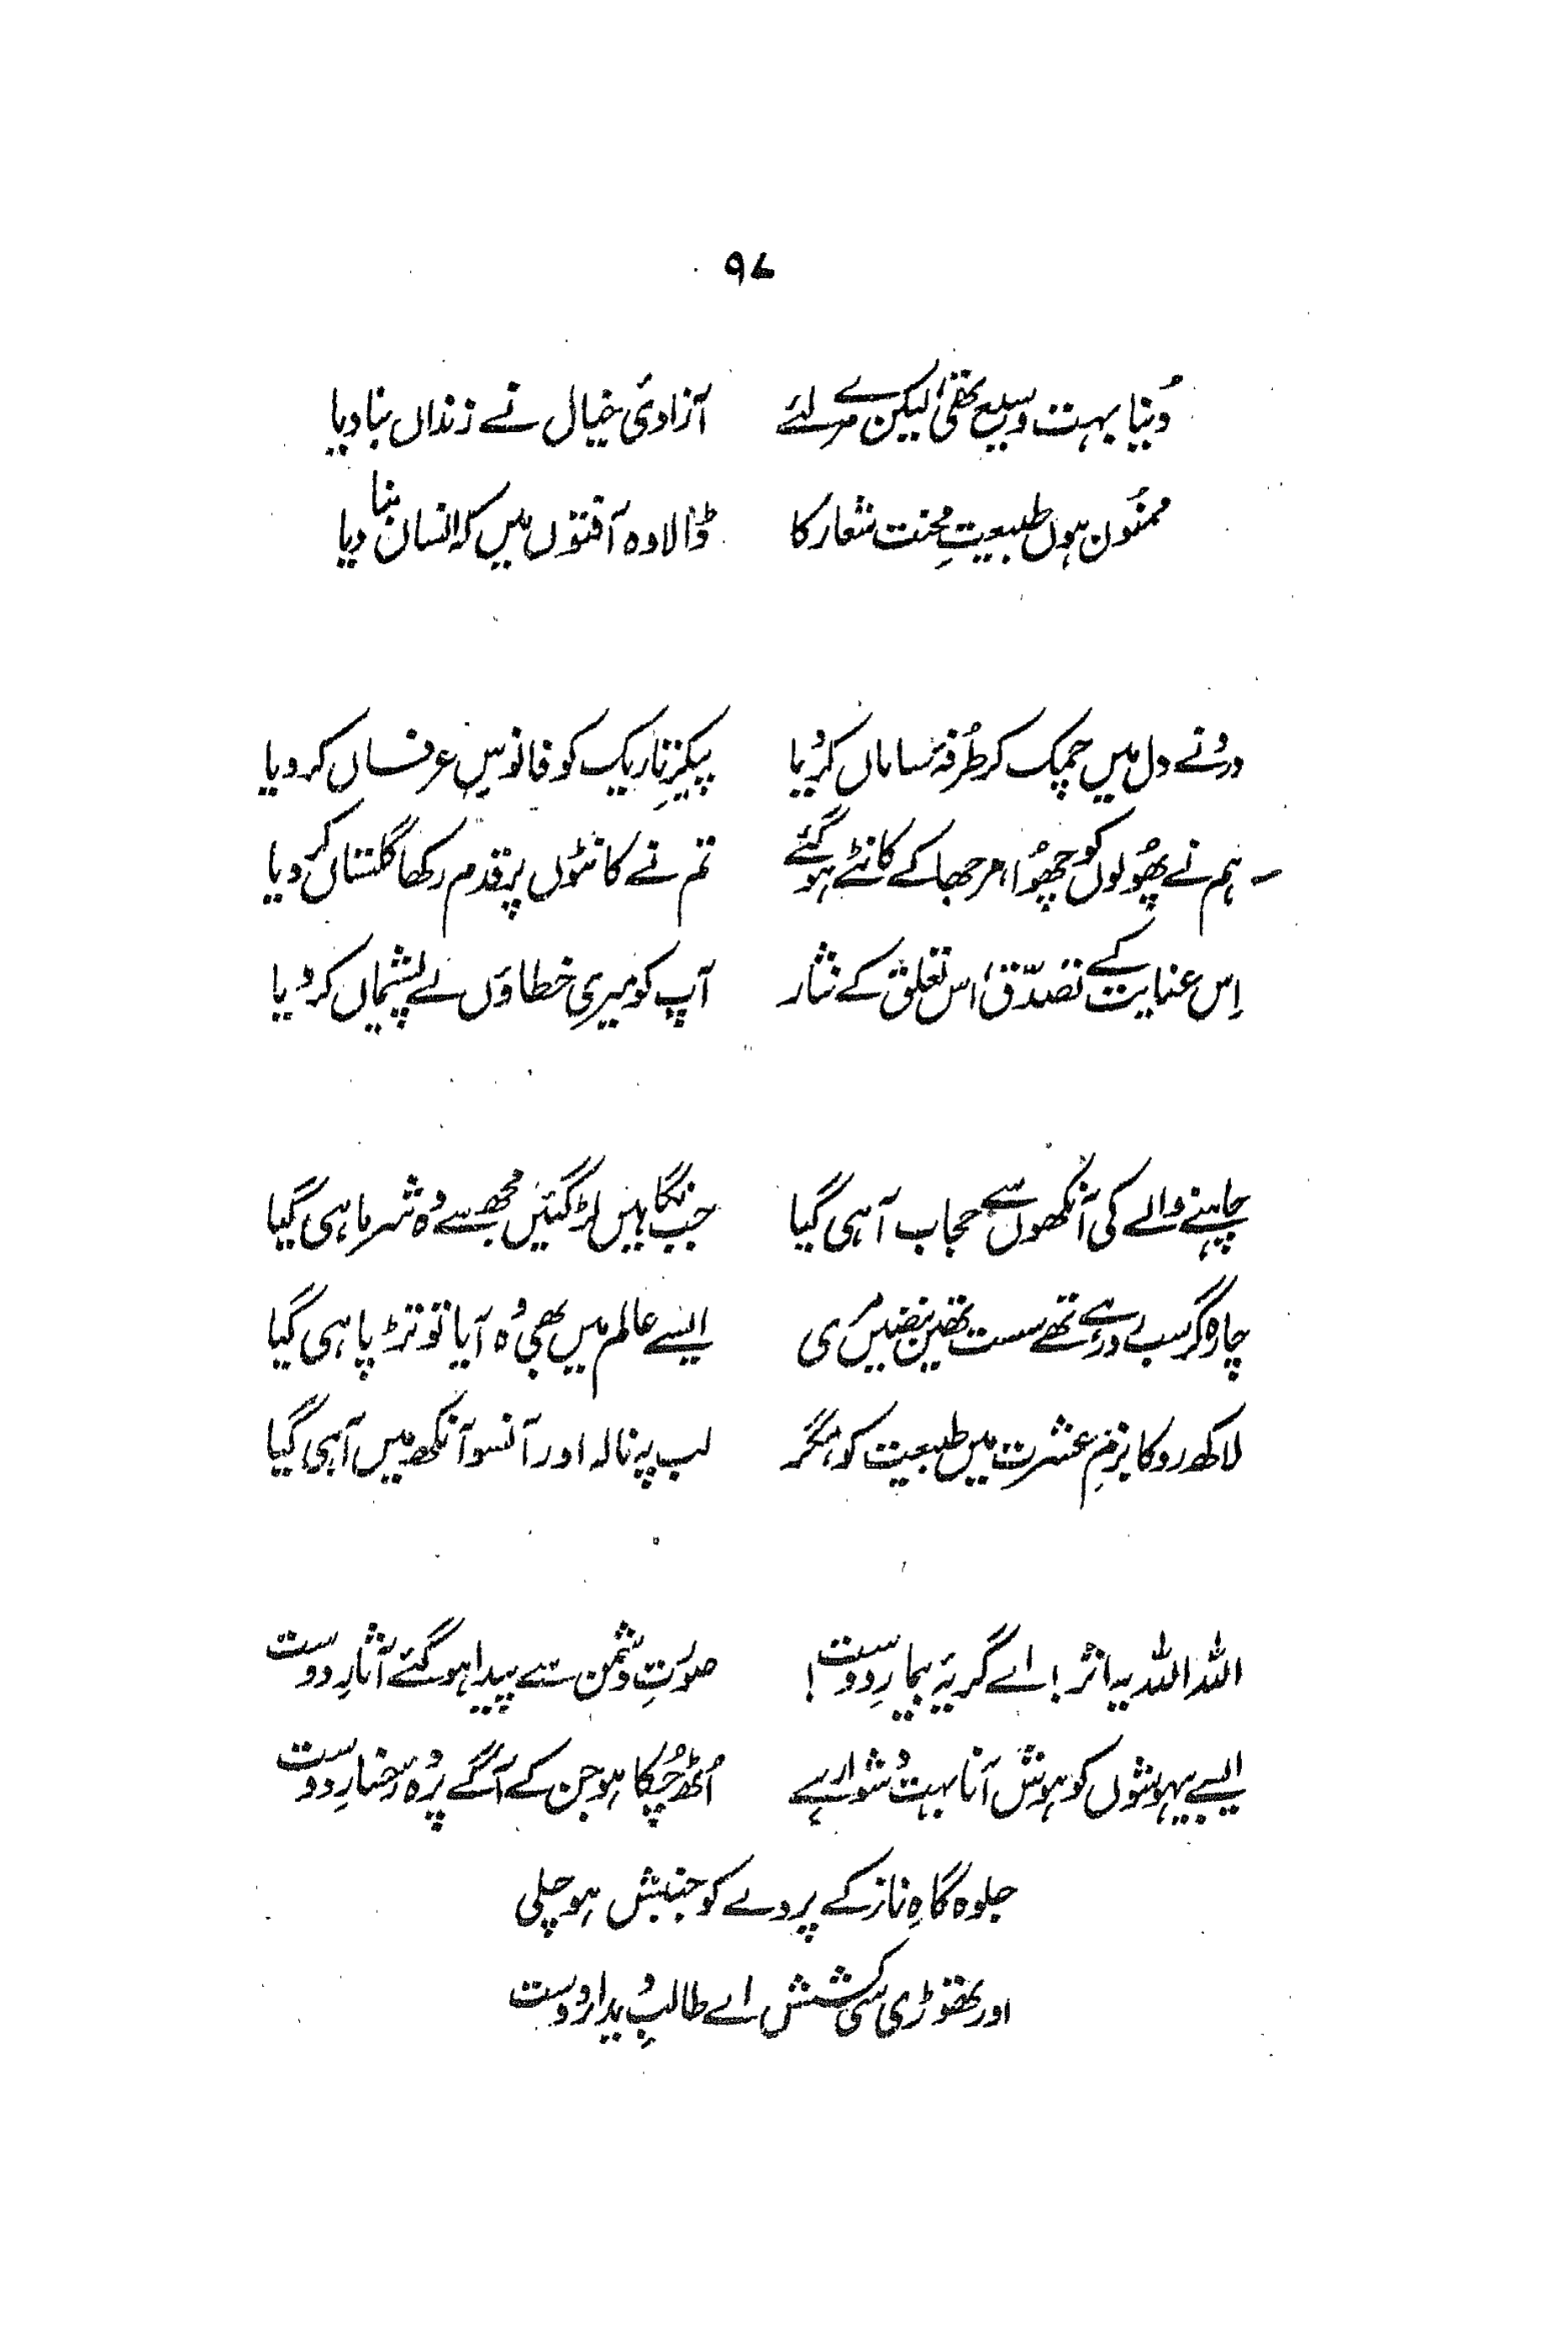 ۹۷
دُنیا بہت وسیع تھی، لیکن مرے لئے آزادیٔ خیال نے زنداں بنا دیا
ممنُون ہوں طبیعتِ محنت شعار کا ڈالا وہ آفتوں میں کہ انسان بنا دیا
درد نے دل میں چمک کر طُرفہ ساماں کر دیا پیکرِ تاریک کو فانوسِ عرفاں کر دیا
ہم نے پھُولوں کو چھُوا، مرجھا کے کانٹے ہو گئے تم نے کانٹوں پر قدم رکھا گلستاں کر دیا
اِس عنایت کے تصدّق، اس تعلق کے نثار آپ کو میری خطاؤں نے پشیماں کر دیا
چاہنے والے کی آنکھوں سے حجاب آ ہی گیا جب نگاہیں لڑ گئیں مجھ سے وُہ شرما ہی گیا
چارہ گر سب بے درد تھے سست تھیں نبضیں مری ایسے عالم میں بھی وُہ آیا تو تڑپا ہی گیا
لاکھ روکا بزمِ عشرت میں طبیعت کو، مگر لب پہ نالہ اور آنسو آنکھ میں آ ہی گیا
اللہ اللہ یہ اثر! اے گریۂ بیمارِ دوست! صورتِ دشمن سے پیدا ہو گئے آثارِ دوست
ایسے بیہوشوں کو ہوش آنا بہت دُشوار ہے اُٹھ چُکا ہو جن کے آگے پردہ رخسارِ دوست
جلوہ گاہِ ناز کے پردے کو جنبش ہو چلی
اور تھوڑی سی کشش اے طالبِ دیدارِ دوست